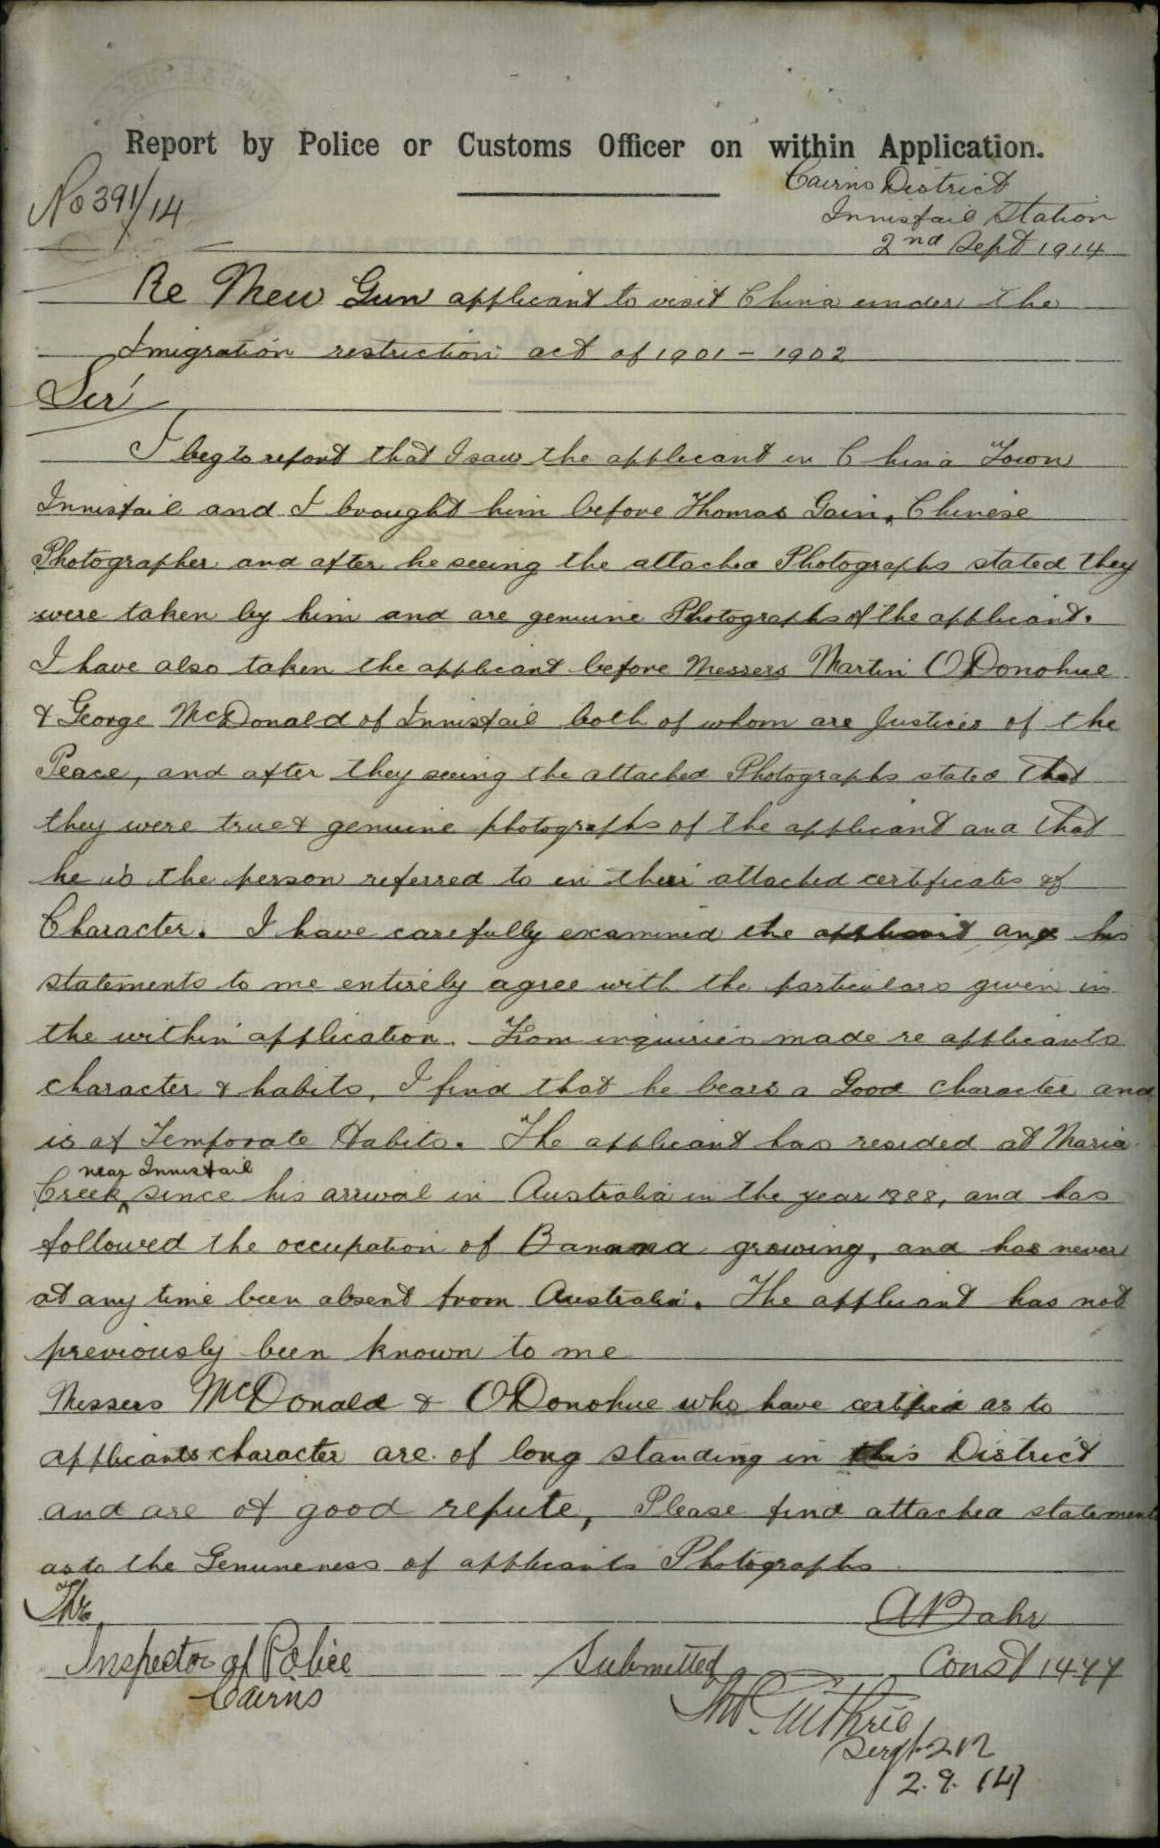 Report by Police or Customs Officer on within Application.
Cairns District
No 391/14
Innisfail Station
2nd Sept 1914
Re Mew Gun applicant to visit China under the
Imigration restriction act of 1901 - 1902
Sir
I beg to report that I saw the applicant in China Town
Innisfail and I brought him before Thomas Gain, Chinese
Photographer and after he seeing the attached Photographs stated they
were taken by him and are genuine Photographs of the applicant.
I have also taken the applicant before Messers Martin O'Donohue
& George McDonald of Innisfail both of whom are Justices of the
Peace, and after they seeing the attached Photographs stated that
they were true & genuine photographs of the applicant and that
he is the person referred to in their attached certificates of
Character. I have carefully examined the applicant and his
statements to me entirely agree with the particulars given in
the within application. From inquiries made re applicants
character & habits, I find that he bears a Good character and
is of Temporate Habits. The applicant has resided at Maria
near Innisfail
Creek, since his arrival in Australia in the year 1888, and has
followed the occupation of Banana growing, and has never
at any time been absent from Australia. The applicant has not
previously been known to me
Messers McDonald & O'Donohue who have certified as to
applicants character are of long standing in this District
and are of good repute, Please find attached statement
as to the Genuneness of applicants Photographs
The
A Bahr
Inspector of Police
Submitted
Const 1477
Cairns
Guthrie
Sergt 212
2.9.14